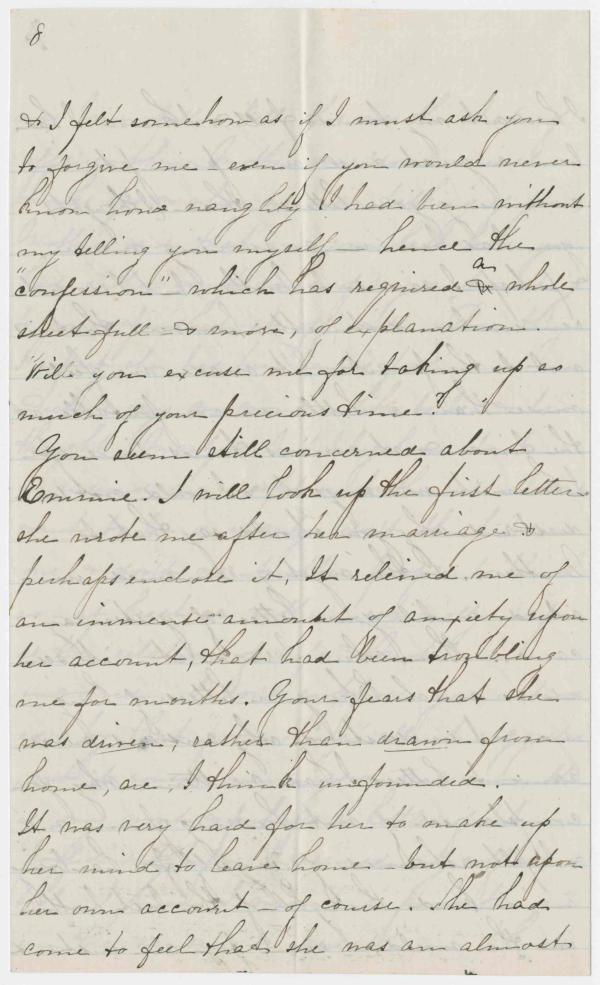 8
& I felt somehow as if I must ask you
to forgive me - even if you would never
know how naughty I had been without
my telling you myself - hence the
"confession" - which has required a whole
sheet-full - & more, of explanation.
Will you excuse me for taking up so
much of your precious time?
You seem still concerned about
Emmie. I will look up the first letter
she wrote me after her marriage &
perhaps enclose it. It releived me of
an immense amount of anxiety upon
her account, that had been troubling
me for months. Your fears that she
was driven, rather than drawn from
home, are, I think unfounded.
It was very hard for her to make up
her mind to leave home - but not upon
her own account - of course. She had
come to feel that she was an almost